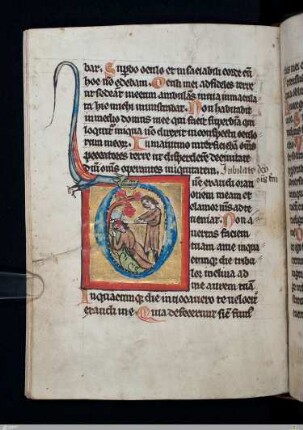 bar. Supbo oculo et insaciabili corde cū
hoc nō edebam. Oculi mei ad fideles terre
ut sedeāt mecum ambulās in uia inmacula
ta hic michi ministrabat. Non habitabit
in medio domus mee qui facit superbiā qui
loquitur iniqua nō direxit in conspectu oculo
rum meoꝝ. In matutino interficiebā om̄s
peccatores terre ut disperderē de ciuitate
dn̄i om̄s operantes iniquitatem.
ne exaudi oran
onem meam et
clamor m̄s ad te
ueniat. Non a
uertas faciem
tuam a me in qua
cumque die tribu
lor inclina ad
me aurem tuā
In quacumque die inuocauero te uelocit
exaudi me Quia defecerunt sic̄ fum